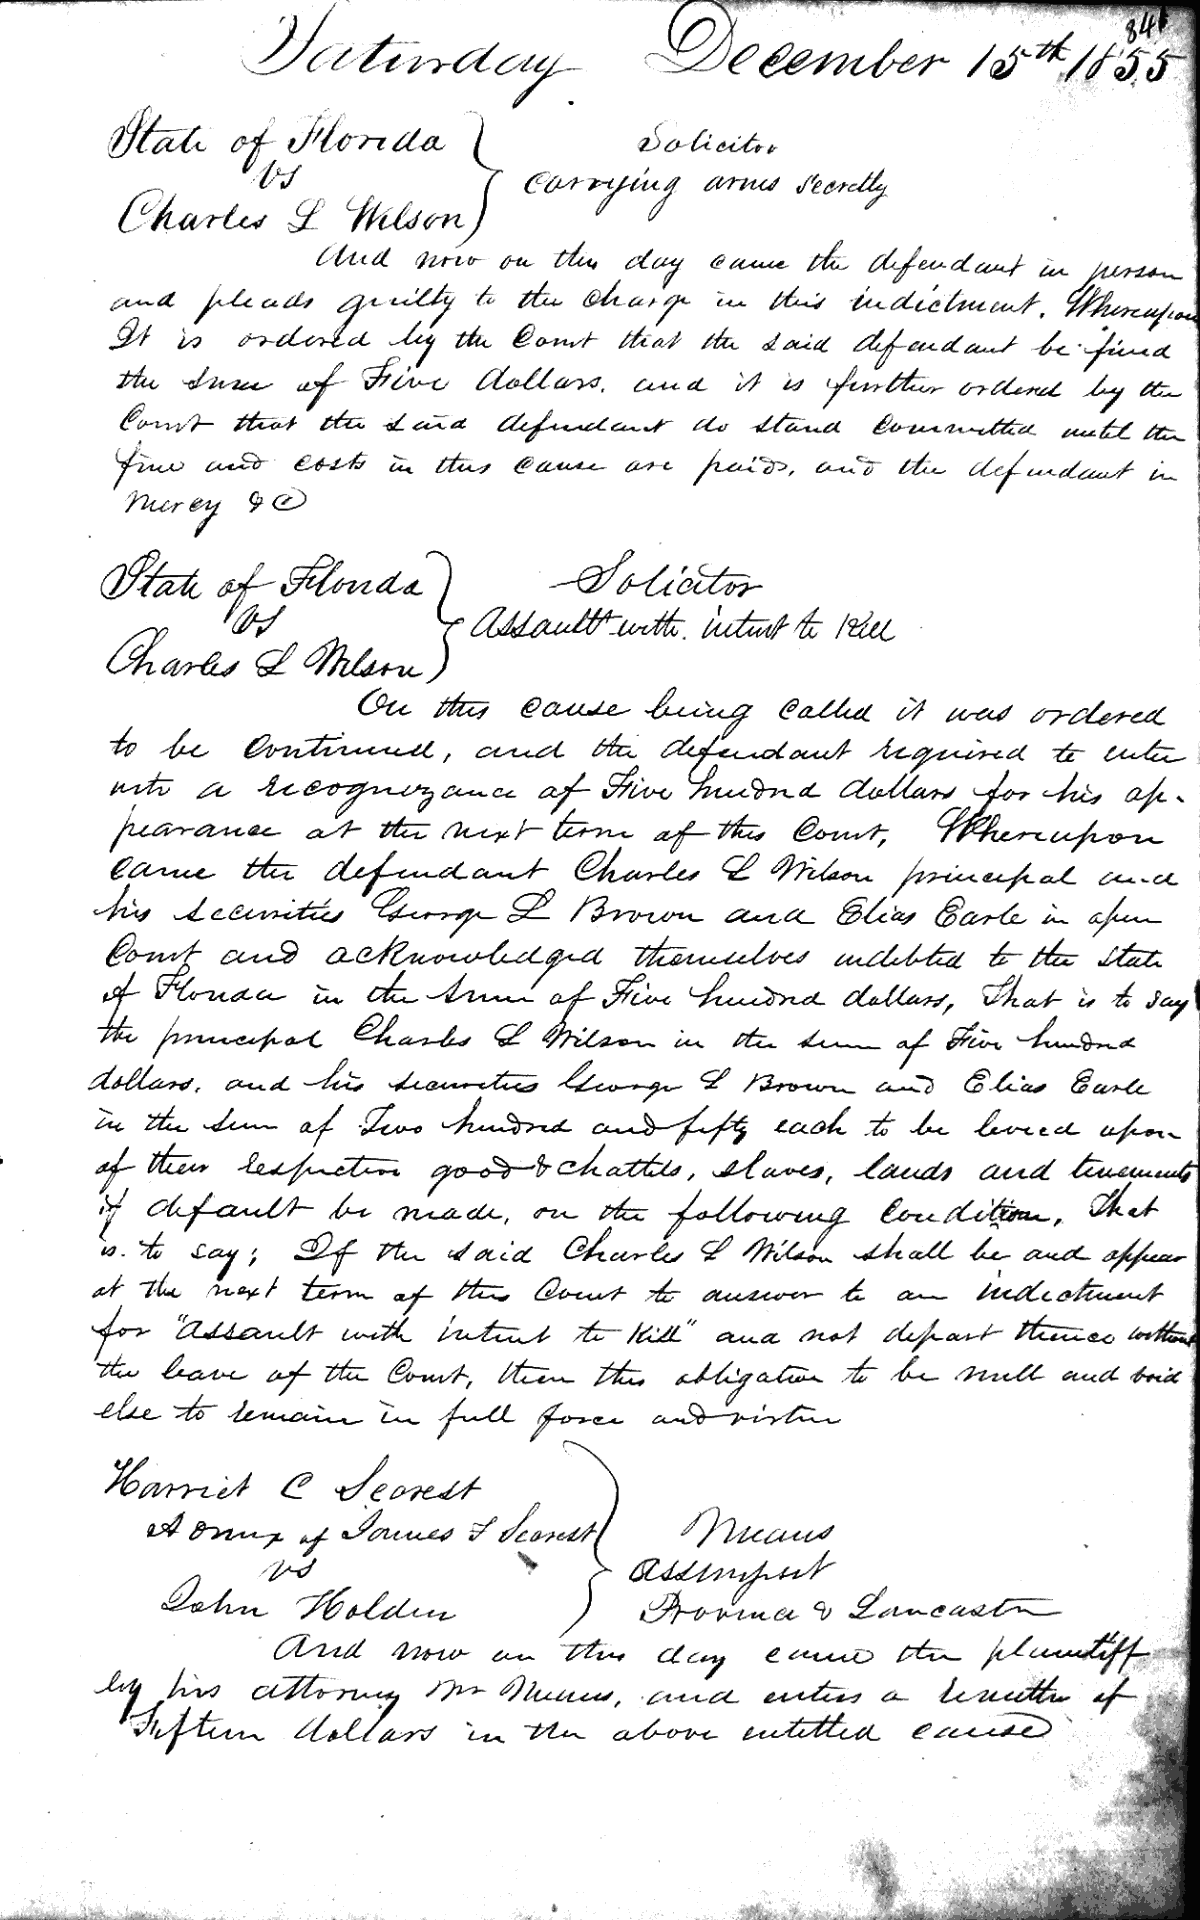 841
Saturday December 15th 1855
State of Florida Solicitor
vs carrying arms secretly
Charles L Wilson
And now on this day came the defendant in person
and pleads guilty to the charge in this indictment. Whereupon
It is ordered by the Court that the said defendant be fined
the sum of Five dollars. and it is further ordered by the
Court that the said defendant do stand committed until the
fine and costs in this cause are paid, and the defendant in
mercy &c
State of Florida Solicitor
vs Assault with intent to Kill
Charles L Wilson
On this cause being called it was ordered
to be continued, and the defendant required to enter
into a recognizance of Five hundred dollars for his ap-
pearance at the next term of this Court, Whereupon
came the defendant Charles L Wilson principal and
his securities George L Brown and Elias Earle in open
Court and acknowledged themselves indebted to the State
of Florida in the sum of Five hundred dollars, That is to say
the principal Charles L Wilson in the sum of Five hundred
dollars. and his securities George L Brown and Elias Earle
in the sum of Two hundred and fifty each to be levied upon
of their respective good & chattles, slaves, lands and tenements
if default be made, on the following condition, That
is to say; If the said Charles L Wilson shall be and appear
at the next term of this Court to answer to an indictment
for "assault with intent to Kill" and not depart thence without
the leave of the Court, then this obligation to be null and void
else to remain in full force and virtue
Harriet C Searest
Admx of James T Searest Means
vs assumpsit
John Holden Provina & Lancaster
And now on this day came the plaintiff
by his attorney Mr Means, and enters a remitter of
Fifteen dollars in the above entitled cause